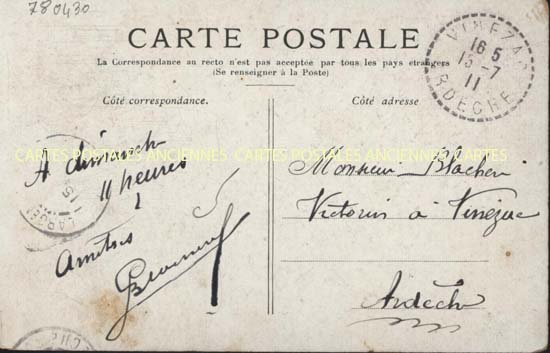 780430
CARTE POSTALE
La Correspondance au recto n'est pas acceptée par tous les pays étrangers
(Se renseigner à la Poste)
Côté correspondance.
Côté adresse
VINEZAC
16 5
15 -7
11
ARDECHE
CARTES POSTALES ANCIENNES CARTES POSTALES ANCIENNES CARTES POSTALES ANCIENNES
A dimanch
11 heures
Amitiés
Monsieur Blachère
Victorin à Vinezac
Ardèche